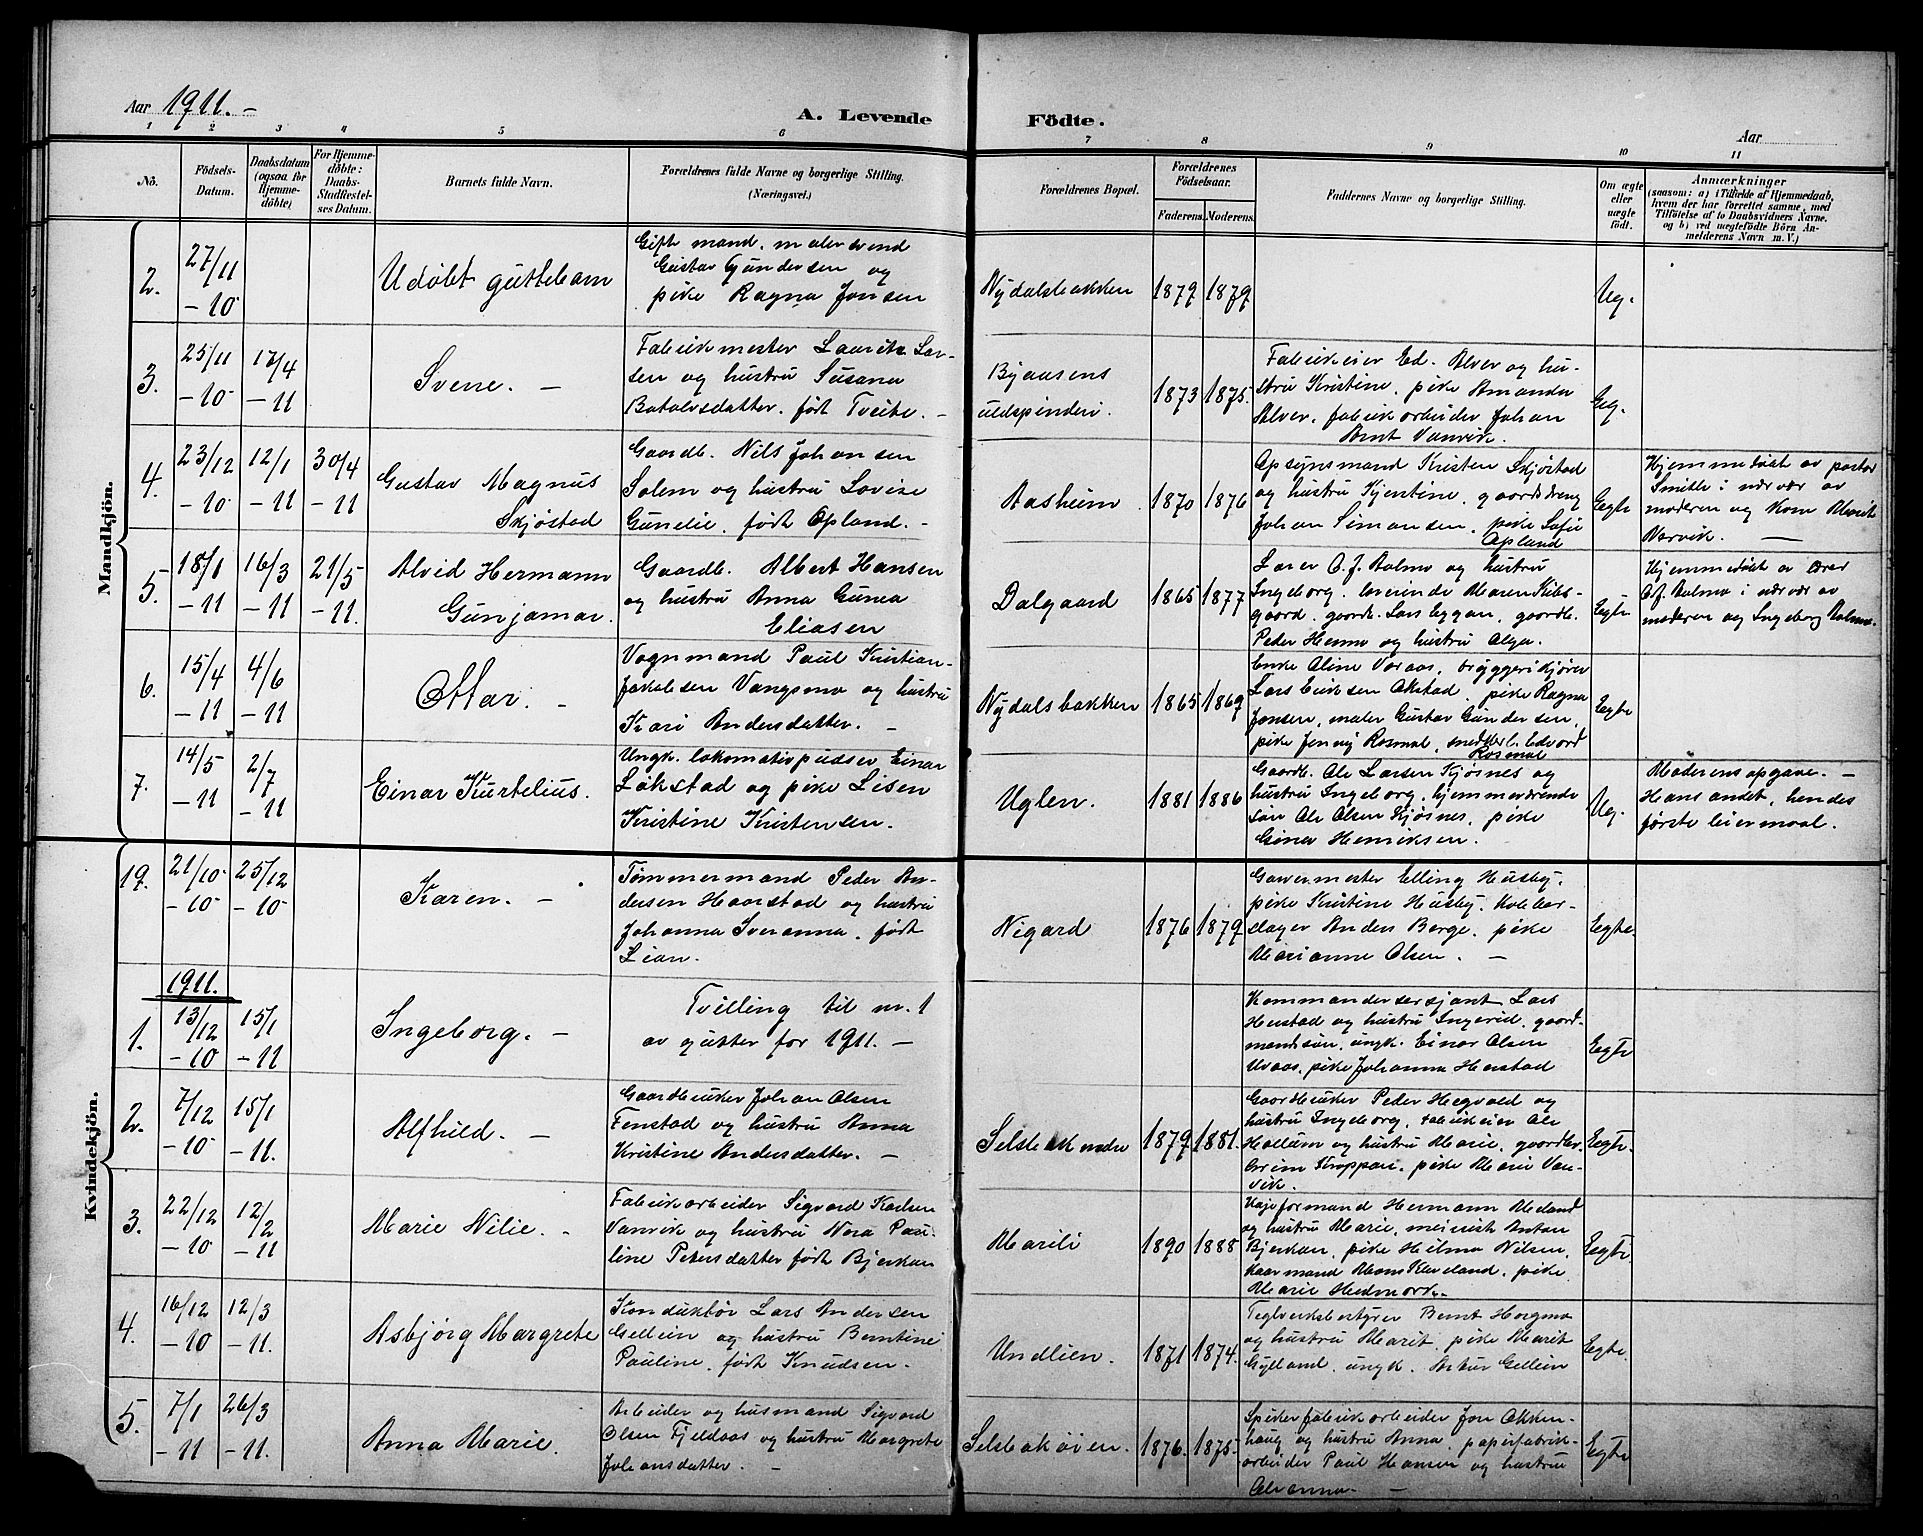 Aar 1911. –
A. Levende
Födte.
Aar
1 2 3 4 5 6 7 8 9 10 11
No.
Födsels-
Datum.
Daabsdatum
(ogsaa for
Hjemme-
döbte)
For Hjemme-
döbte:
Daabs-
Stadfæstel-
ses Datum.
Barnets fulde Navn.
Forældrenes fulde Navne og borgerlige Stilling.
(Næringsvei.)
Forældrenes Bopæl.
Forældrenes
Födselsaar.
Faderens. Moderens.
Faddernes Navne og borgerlige Stilling.
Om ægte
eller
uægte
födt.
Anmærkninger
(saasom: a) i Tilfælde af Hjemmedaab,
hvem der har forrettet samme, med
Tilföielse af to Daabsvidners Navne,
og b) ved uægtefödte Börn An-
melderens Navn m. V.)
Mandkjön.
2.
27/11
– 10
Udøbt guttebarn
Gift mand, malersvend
Gustav Gundersen og
pike Ragna Jonsen
Nydalsbakken
1879 1879
Ug.
3.
25/11
– 10
17/4
– 11
Svene. –
Fabrikmester Laurits Lar-
sen og hustru Susana
Botolvsdatter, født Tveite. –
Byaasens
uldspinderi.
1873 1875.
Fabrikeier Ed. Alver og hu-
stru Kristine, pike Amanda
Alver, fabrikarbeider Johan
Bernt Vanvik.
Eg.
4.
23/12
– 10
12/1
– 11
30/4
– 11
Gustav Magnus
Skjøstad
Gaardb. Nils Johansen
Solem og hustru Lovise
Gunelie, født Opland. –
Aasheim.
1870 1876
Opsynsmand Kristen Skjøstad
og hustru Kjentine, gaardsdreng
Johan Simonsen, pike Sofie
Opland
Egte
Hjemmedøbt av pastor
Smitt i nærvær av
moderen og Kone Marit
Narvik. –
5.
18/1
– 11
16/3
– 11
21/5
– 11.
Alvid Hermann
Gunjamar.
Gaardb. Albert Hansen
og hustru Anna Gunea
Eliasen
Dalgaard
1865 1877
Lærer O. J. Aalmo og hustru
Ingeborg, Maren
gaard, gaardb. Lars Eggan, gaardb.
Peder Hemmo og hustru Olga.
Egte
Hjemmedøbt av lærer
O. J. Aalmo i nærvær av
moderen og Ingeborg Aalmo.
6.
15/4
– 11
4/6
– 11
Ottar. –
Vognmand Paul Kristian
Jakobsen Vangsmo og hustru
Kari Andersdatter. –
Nydalsbakken
1865 1869
Enke Oline Voraas, bryggerikjører
Lars Eriksen Okstad, pike Ragna
Jonsen, maler Gustav Gundersen,
pike Jenny Rosmal, Edvard
Rosmal
Egte
7.
14/5
– 11
2/7
– 11
Einar Kurtelius.
Ungk. lokomotivpudser Einar
Løkstad og pike Lisen
Kristine Kristensen.
Uglen.
1881 1886
Gaardb. Ole Larsen Kjøsnes og
hustru Ingeborg, hjemmeværende
søn Ole Olsen Kjøsnes, pike
Gina Henriksen.
Ug.
Moderens opgave. –
Hans andet, hendes
første leiermaal.
Kvindekjön.
19.
21/10
– 10
25/12
– 10
Karen. –
Tømmermand Peder An-
dersen Haarstad og hustru
Johanna Sveranna, født
Lian.
Nigard
1876 1879
Garvermester Elling Husby,
pike Kristine Husby, Kolebær-
dager Anders Berge, pike
Marianne Olsen. –
Egte.
1911.
1.
13/12
– 10
15/1
– 11
Ingeborg. –
Tvilling til nr. 1
av gutter for 1911. –
Kommandersersjant Lars
Herstad og hustru Ingerid, gaard-
mandssøn, ungk. Einar Olsen
Uvaas, pike Johanna Herstad
Egte
2.
7/12
– 10
15/1
– 11.
Alfhild. –
Gaardbruker Johan Olsen
Fenstad og hustru Anna
Kristine Andersdatter. –
Selsbak nedre
1879 1881.
Gaardbruker Peder Hegvold og
hustru Ingeborg, fabrikeier Ole
Hallum og hustru Marie, gaardbr.
Kroppan, pike Marie Van-
vik.
Egte.
3.
22/12
– 10
12/2
– 11
Marie Nilie. –
Fabrikarbeider Sigvard Karlsen
Vanvik og hustru Nora Pau-
line Petersdatter født Bjerkan
Marili
1890 1888
Hermann Meland
og hustru Marie, meierist Anton
Bjerkan, pike Hilma Nilsen,
Mons Kleveland, pike
Marie Hedmark.
Egte.
4.
16/12
– 10
12/3
– 11.
Asbjørg Margrete
Konduktør Lars Andersen
Gellein og hustru Berntine
Pauline, født Knudsen. –
Undlien.
1871 1874.
Teglverksbestyrer Bernt Horgmo
og hustru Marit, pike Marit
Gylland, ungk. Artur Gellein
Egte.
5.
7/1
– 11
26/3
– 11.
Anna Marie.
Arbeider og husmand Sigvard
Olsen Fjeldaas og hustru Margrete
Johansdatter. –
Selsbakøien.
1876. 1875.
Spikerfabrikarbeider Jon Okken-
haug og hustru Anna, papirfabrik-
arbeider Paul Hansen og hustru
Oleanna. –
Egte